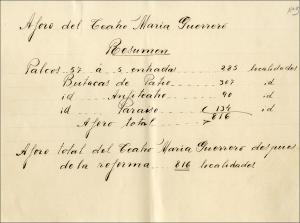 Aforo del Teatro Maria Guerrero
Resumen
Palcos 57 á 5 entrada 285 localidades
Butacas de Patio 307 id
id Anfiteatro 90 id
id Paraiso 134 id
Aforo total 816
Aforo total del Teatro Maria Guerrero despues
de la reforma 816 localidades